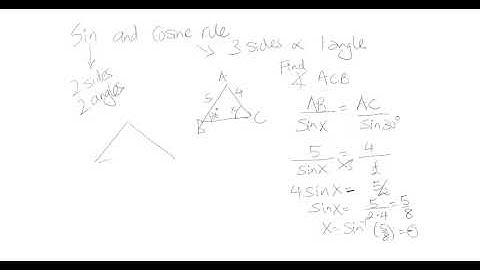 Sin and cosine rule
3 sides ∝ 1 angle
2 sides
2 angles
A
5 4
B C
Find
∡ ACB
AB/Sinx = AC/Sin30°
5/sinx = 4/
4 sinx = 5/2
sinx = 5/2·4 = 5/8
x = Sin⁻¹(5/8) =